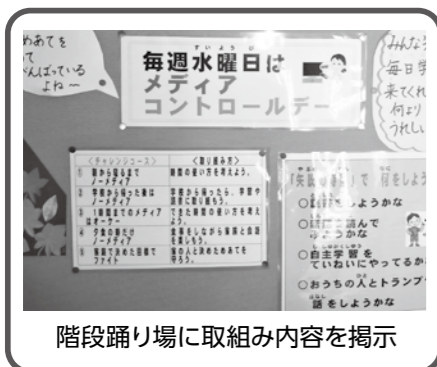 めあてを
て
んばっている
よね～
毎週水曜日は
すいようび
メディア
コントロールデー
みんな
毎日学
来てくれ
何より
うれしい
＜チャレンジコース＞ ＜取り組み方＞
① 朝から寝るまで ノーメディア 時間の使い方を考えよう。
② 学校から帰った後は ノーメディア 学校から帰ったら、学習や 読書に取り組もう。
③ 1時間までのメディア はオーケー できた時間の使い方を考え よう。
④ 夕食の間だけ ノーメディア 食事をしながら家族と会話 を楽しもう。
⑤ 家族で決めた目標で ファイト 家の人と決めためあてを 守ろう。
で 何をしよう
○ しようかな
○ 読んで
ようかな
○自主学習を
ていねいにやってるか
○おうちの人とトランプ
話をしようかな
階段踊り場に取組み内容を掲示